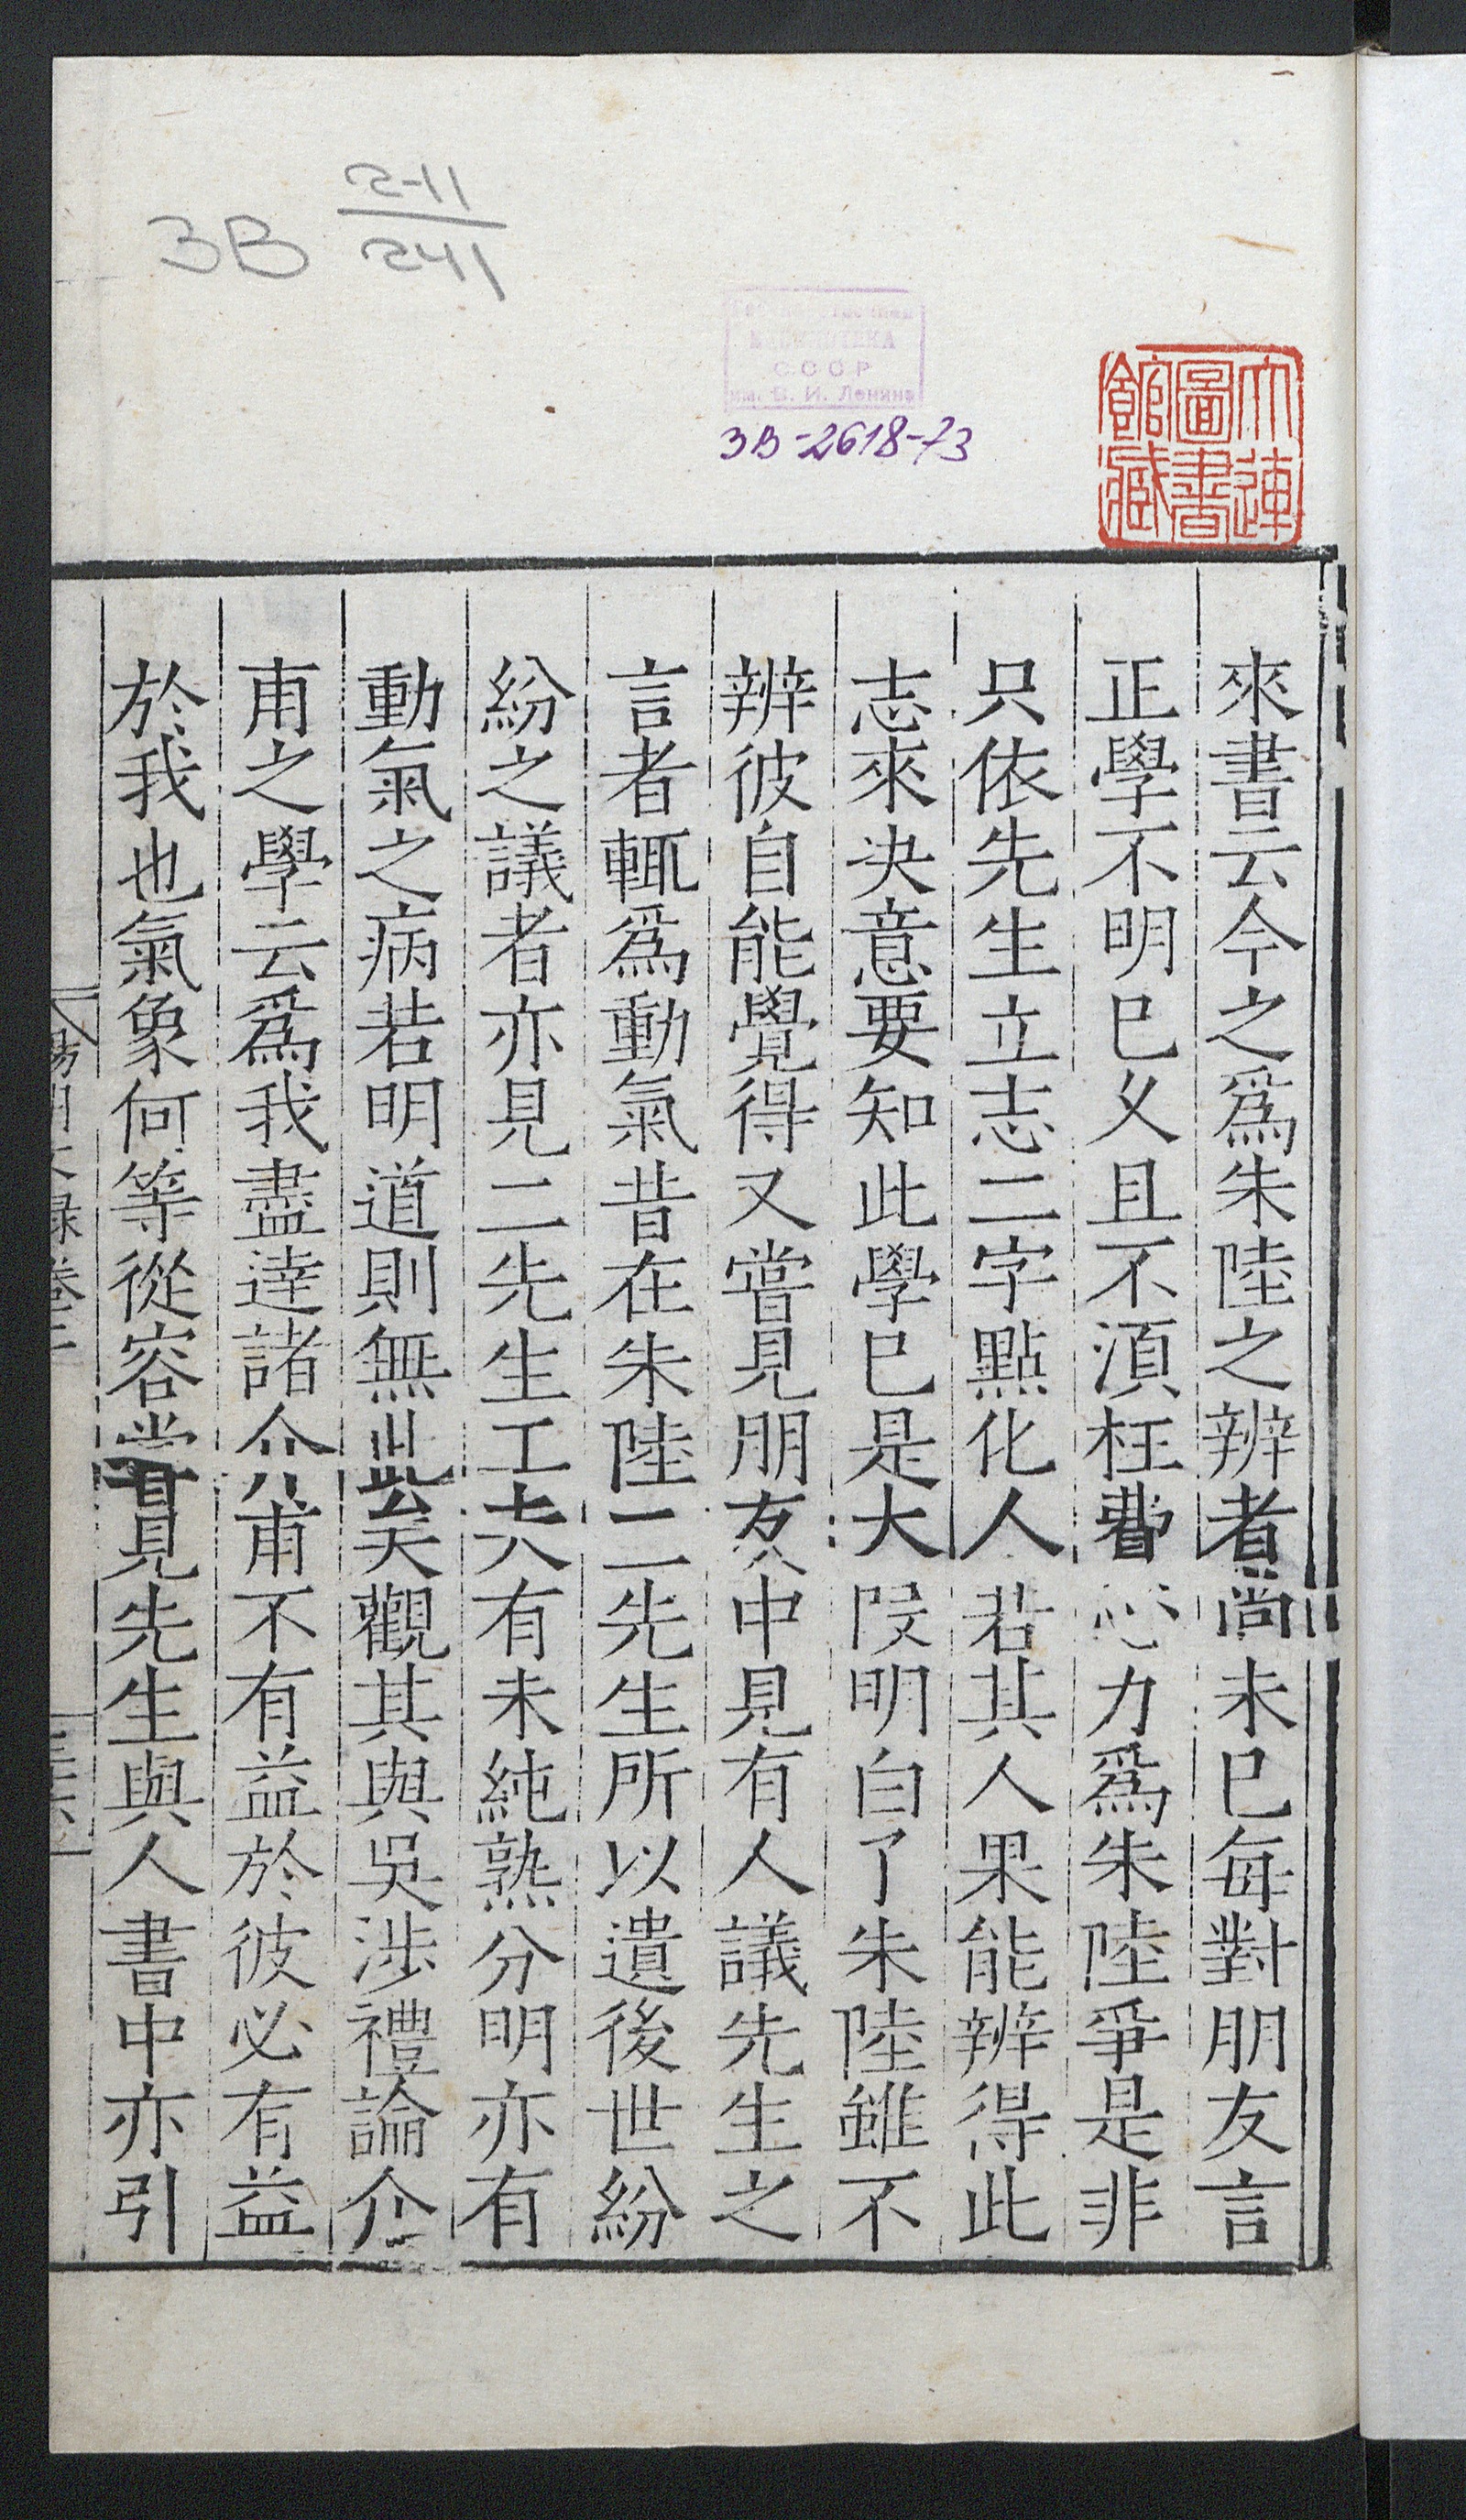 3В 2-11
241
Государственная
БИБЛИОТЕКА
СССР
им. В. И. Ленина
3В-2618-73
大連
圖書
館藏
來書云今之爲朱陸之辨者尚未已每對朋友言
正學不明已乆且不湏枉費心力爲朱陸爭是非
只依先生立志二字點化人若其人果能辨得此
志來决意要知此學已是大段明白了朱陸雖不
辨彼自能覺得又嘗見朋友中見有人議先生之
言者輒爲動氣昔在朱陸二先生所以遺後世紛
紛之議者亦見二先生工夫有未純熟分明亦有
動氣之病若明道則無此矣觀其與吳涉禮論介
甫之學云爲我盡逹諸介甫不有益於彼必有益
於我也氣象何等從容嘗見先生與人書中亦引
陽明文録卷三